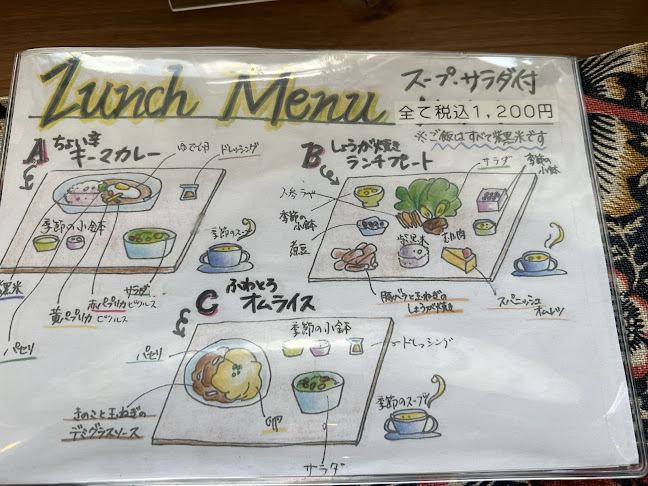 Lunch Menu
スープ・サラダ付
全て税込1,200円
※ご飯はすべて紫黒米です
A ちょい辛
キーマカレー
ゆで卵
ドレッシング
季節の小鉢
季節のスープ
黒米
パセリ
黄パプリカ
ピクルス
赤パプリカ
ピクルス
サラダ
B しょうが焼き
ランチプレート
サラダ
季節の
小鉢
人参ラペ
季節の
小鉢
煮豆
紫黒米
豚バラと玉ねぎの
しょうが焼き
スパニッシュ
オムレツ
C ふわとろ
オムライス
季節の小鉢
パセリ
ドレッシング
きのこと玉ねぎの
デミグラスソース
卵
サラダ
季節のスープ